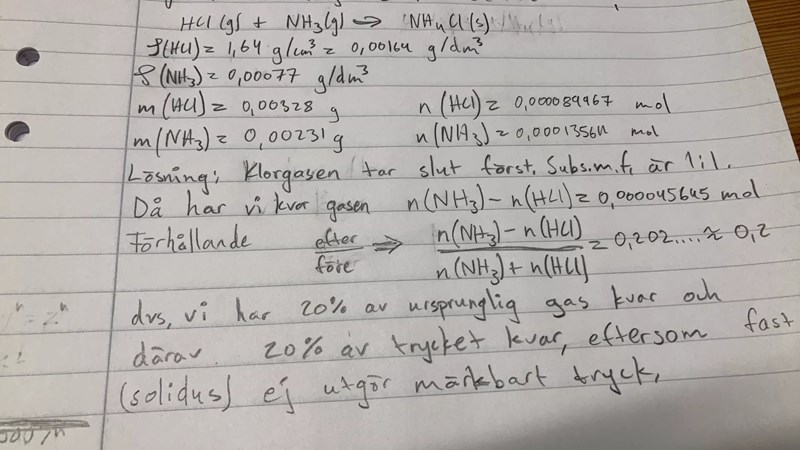 HCl(g) + NH₃(g) → NH₄Cl(s)
ρ(HCl) = 1,64 g/cm³ = 0,00164 g/dm³
ρ(NH₃) = 0,00077 g/dm³
m(HCl) = 0,00328 g n(HCl) = 0,000089967 mol
m(NH₃) = 0,00231 g n(NH₃) = 0,00013564 mol
Lösning: Klorgasen tar slut först. Subs.m.f. är 1:1.
Då har vi kvar gasen n(NH₃) - n(HCl) = 0,000045645 mol
Förhållande efter/före ⇒ n(NH₃) - n(HCl) / n(NH₃) + n(HCl) = 0,202.... ≈ 0,2
dvs, vi har 20% av ursprunglig gas kvar och
därav 20% av trycket kvar, eftersom fast
(solidus) ej utgör märkbart tryck,